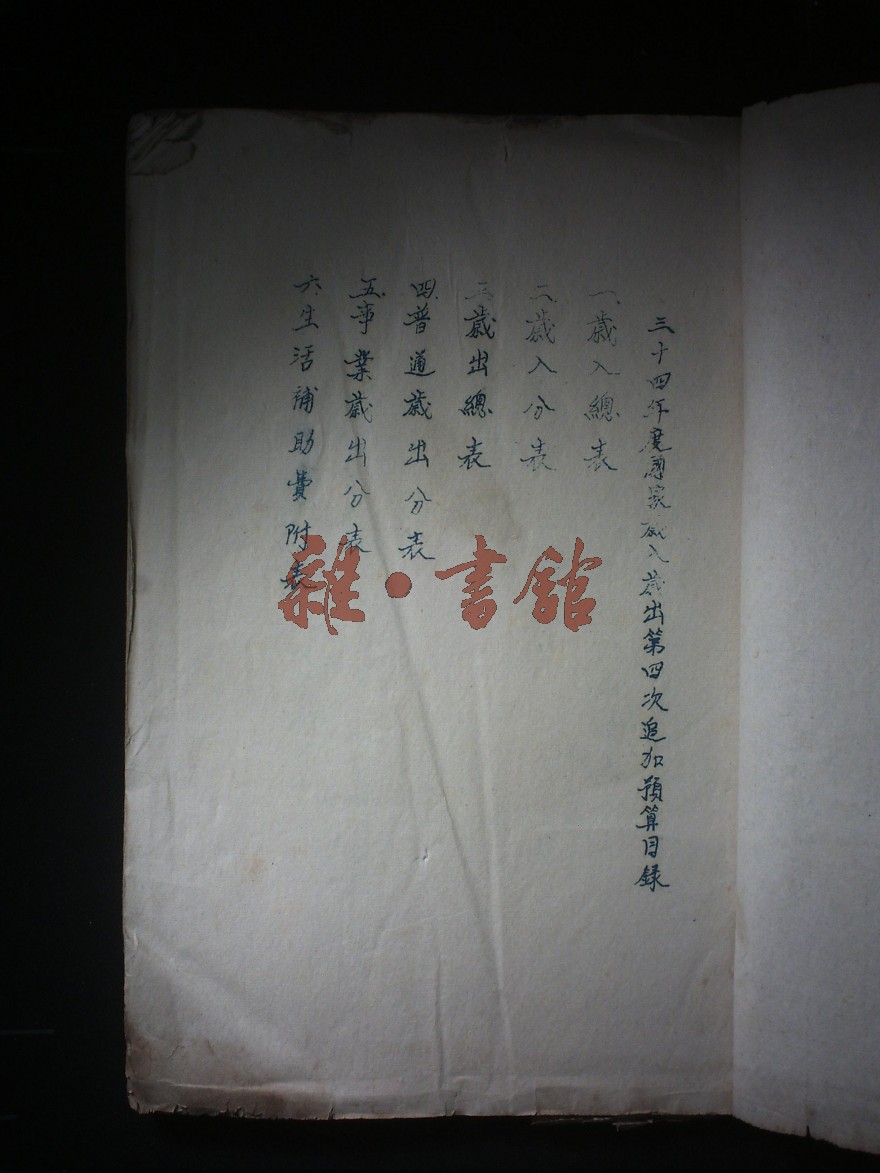 三十四年度國家歲入歲出第四次追加預算目錄
一、歲入總表
二、歲入分表
三、歲出總表
四、普通歲出分表
五、事業歲出分表
六、生活補助費附表
雜·書館